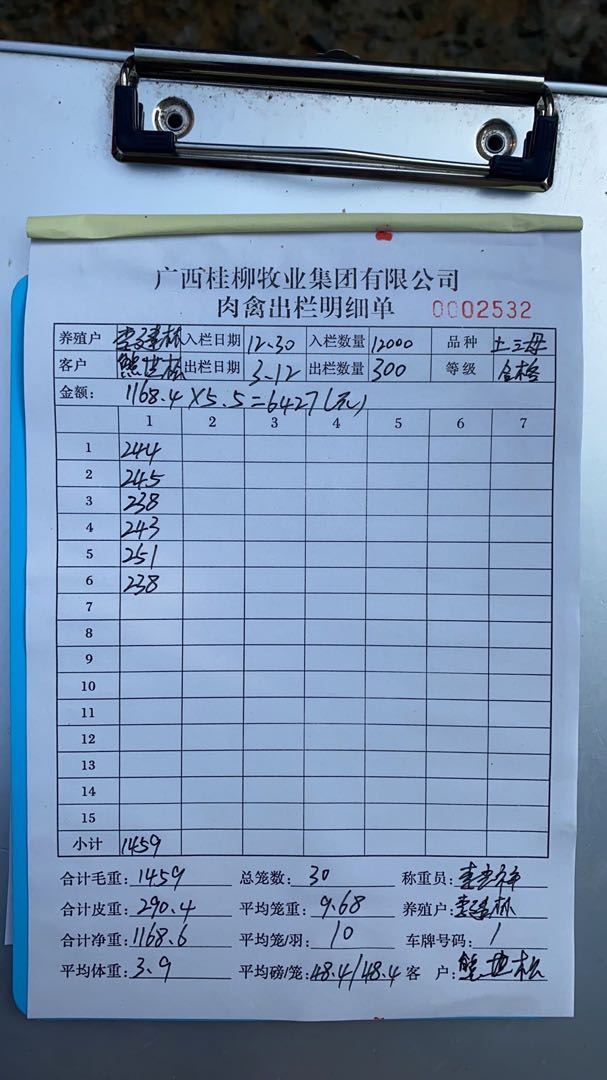 广西桂柳牧业集团有限公司
肉禽出栏明细单 0002532
养殖户 李建林 入栏日期 12.30 入栏数量 12000 品种 土三母
客户 熊世松 出栏日期 3-12 出栏数量 300 等级 合格
金额: 1168.4×5.5=6427(元)
1 2 3 4 5 6 7
1 244
2 245
3 238
4 243
5 251
6 238
7
8
9
10
11
12
13
14
15
小计 1459
合计毛重: 1459 总笼数: 30 称重员:
合计皮重: 290.4 平均笼重: 9.68 养殖户: 李建林
合计净重: 1168.6 平均笼/羽: 10 车牌号码: 1
平均体重: 3.9 平均磅/笼: 48.4/48.4 客 户: 熊世松